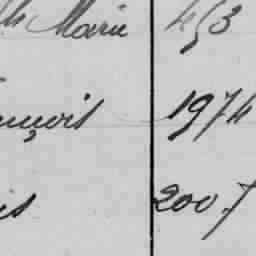 Marie 453
nçois 1974
is 2007